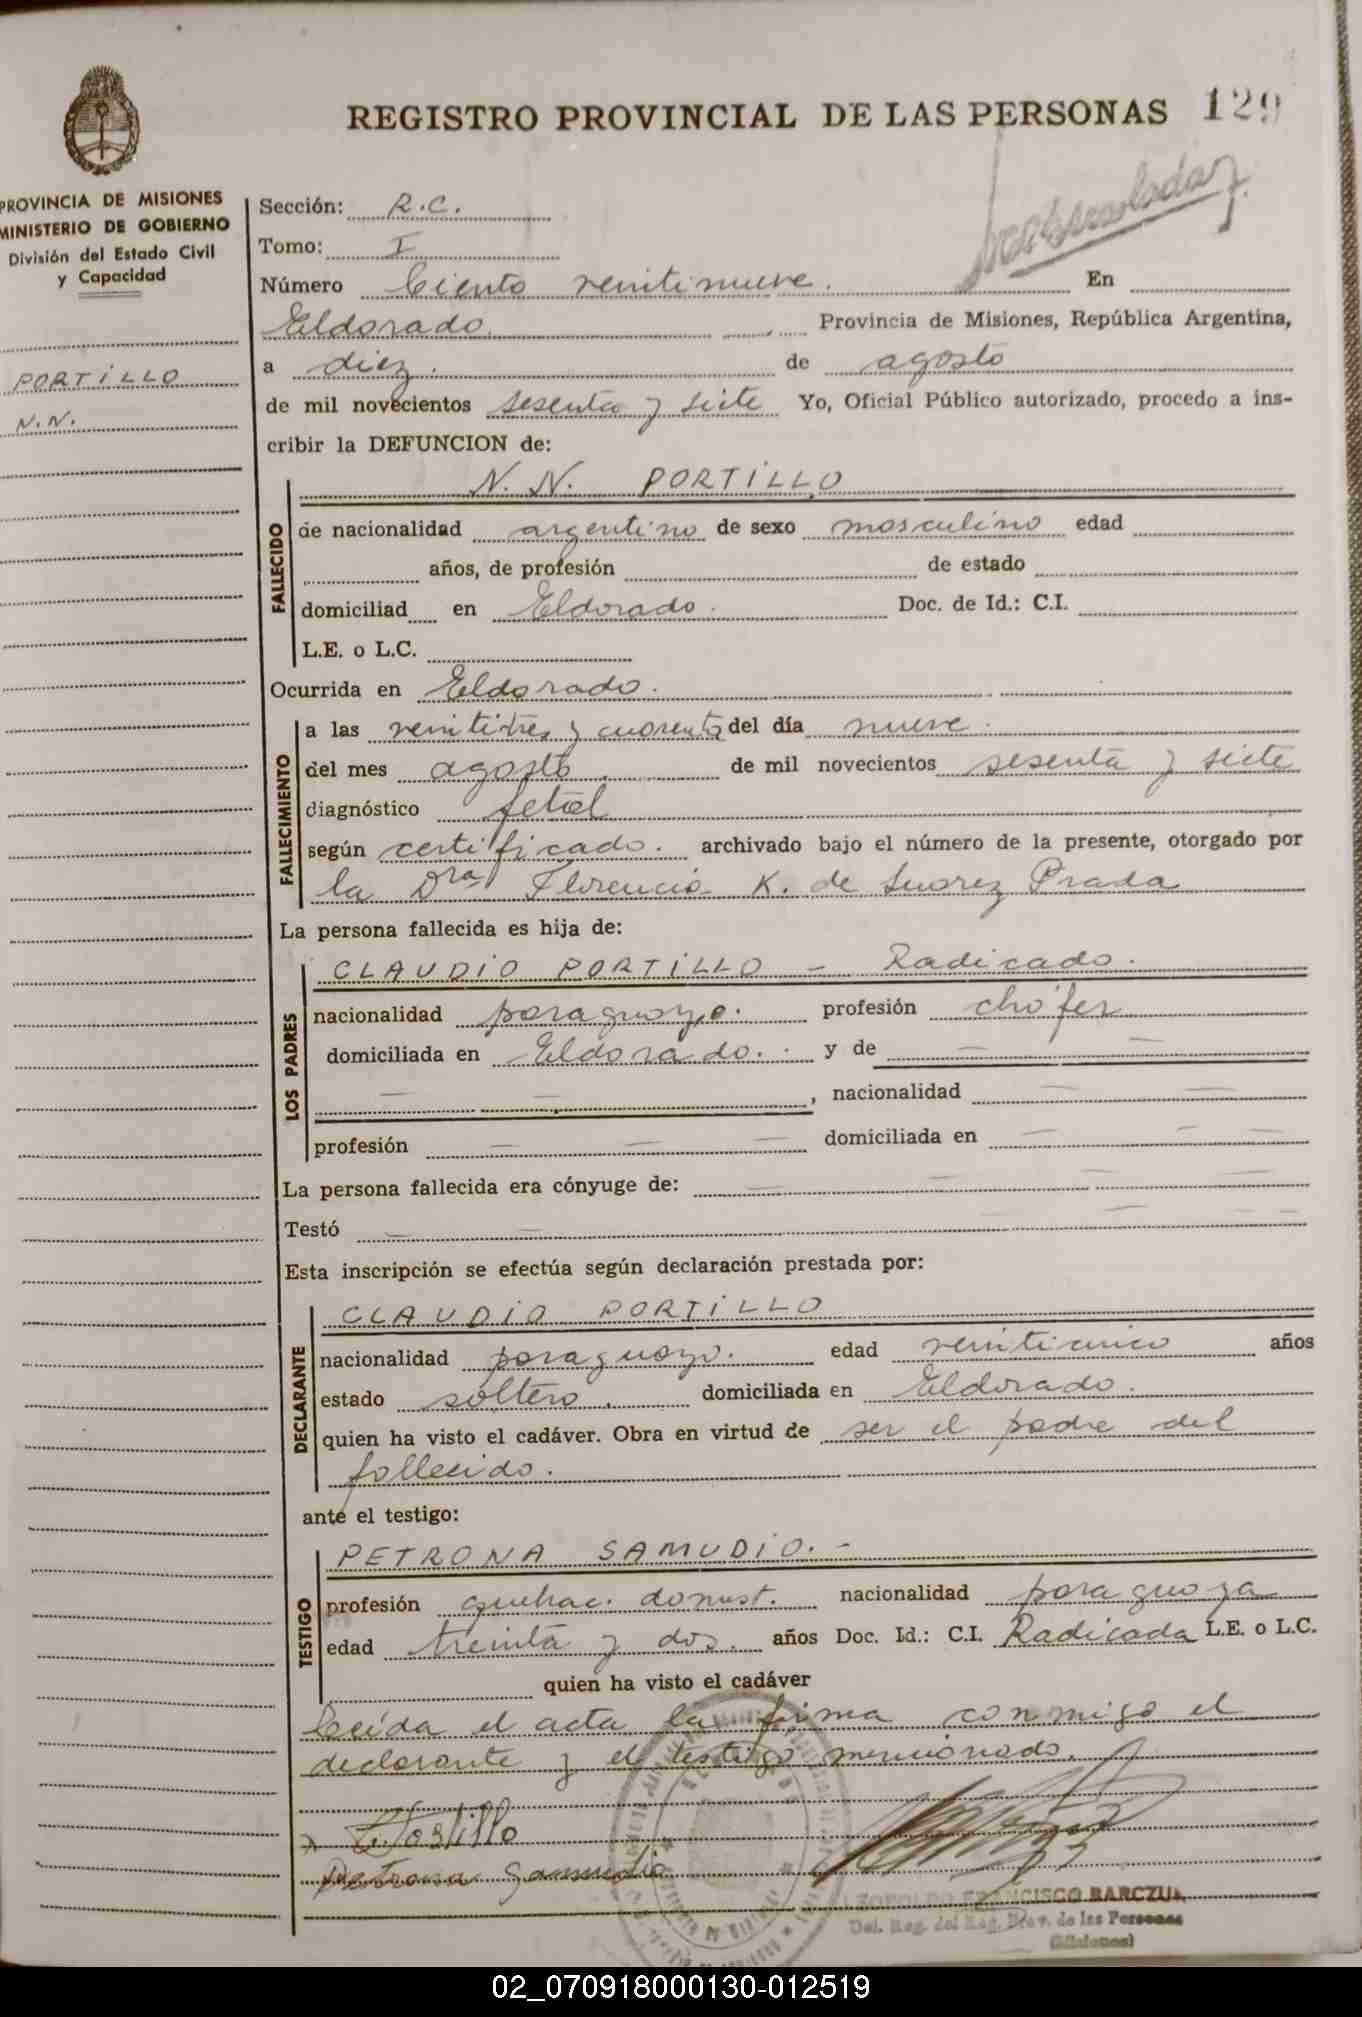 REGISTRO PROVINCIAL DE LAS PERSONAS 129
PROVINCIA DE MISIONES
MINISTERIO DE GOBIERNO
División del Estado Civil
y Capacidad
PORTILLO
N.N.
Sección: R.C.
Tomo: I
Número Ciento veintinueve. En
Eldorado. Provincia de Misiones, República Argentina,
a diez. de agosto
de mil novecientos sesenta y siete Yo, Oficial Público autorizado, procedo a ins-
cribir la DEFUNCION de:
N. N. PORTILLO
FALLECIDO
de nacionalidad argentino de sexo masculino edad
años, de profesión de estado
domiciliad en Eldorado. Doc. de Id.: C.I.
L.E. o L.C.
Ocurrida en Eldorado.
FALLECIMIENTO
a las veintitres y cuarenta del día nueve.
del mes agosto de mil novecientos sesenta y siete
diagnóstico fetal
según certificado. archivado bajo el número de la presente, otorgado por
la Dra Florencia K. de Suarez Prada
La persona fallecida es hija de:
LOS PADRES
CLAUDIO PORTILLO - Radicado.
nacionalidad paraguayo. profesión chófer
domiciliada en Eldorado. y de — —
— — , nacionalidad — —
profesión — — — domiciliada en — — —
La persona fallecida era cónyuge de: — — — —
Testó — — — — —
Esta inscripción se efectúa según declaración prestada por:
DECLARANTE
CLAUDIO PORTILLO
nacionalidad paraguayo. edad veinticinco años
estado soltero. domiciliada en Eldorado.
quien ha visto el cadáver. Obra en virtud de ser el padre del
fallecido.
ante el testigo:
TESTIGO
PETRONA SAMUDIO. -
profesión quehac. domest. nacionalidad paraguaya
edad treinta y dos. años Doc. Id.: C.I. Radicada L.E. o L.C.
quien ha visto el cadáver
Leída el acta la firma conmigo el
declarante y el testigo mencionado.
x C. Portillo
Petrona Samudio
LEOPOLDO FRANCISCO BARCZUK
Del. Reg. del Reg. Prov. de las Personas
(Misiones)
02_070918000130-012519